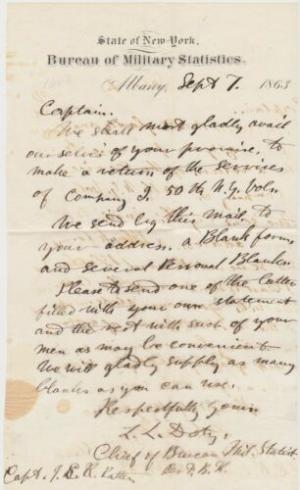 State of New-York,
Bureau of Military Statistics.
Albany, Sept 7. 1863
Captain.
We shall most gladly avail
ourselves of your promise, to
make a return of the services
of Company I. 50th N.Y. Vols.
We send by this mail, to
your address, a Blank form
and several Personal Blanks
Please to send one of the latter
filled with your own statement
and the rest with such of your
men as may be convenient
We will gladly supply as many
blanks as you can use.
Respectfully yours
L. L. Doty,
Chief of Bureau Mil. Statist.
Per
Capt. J.